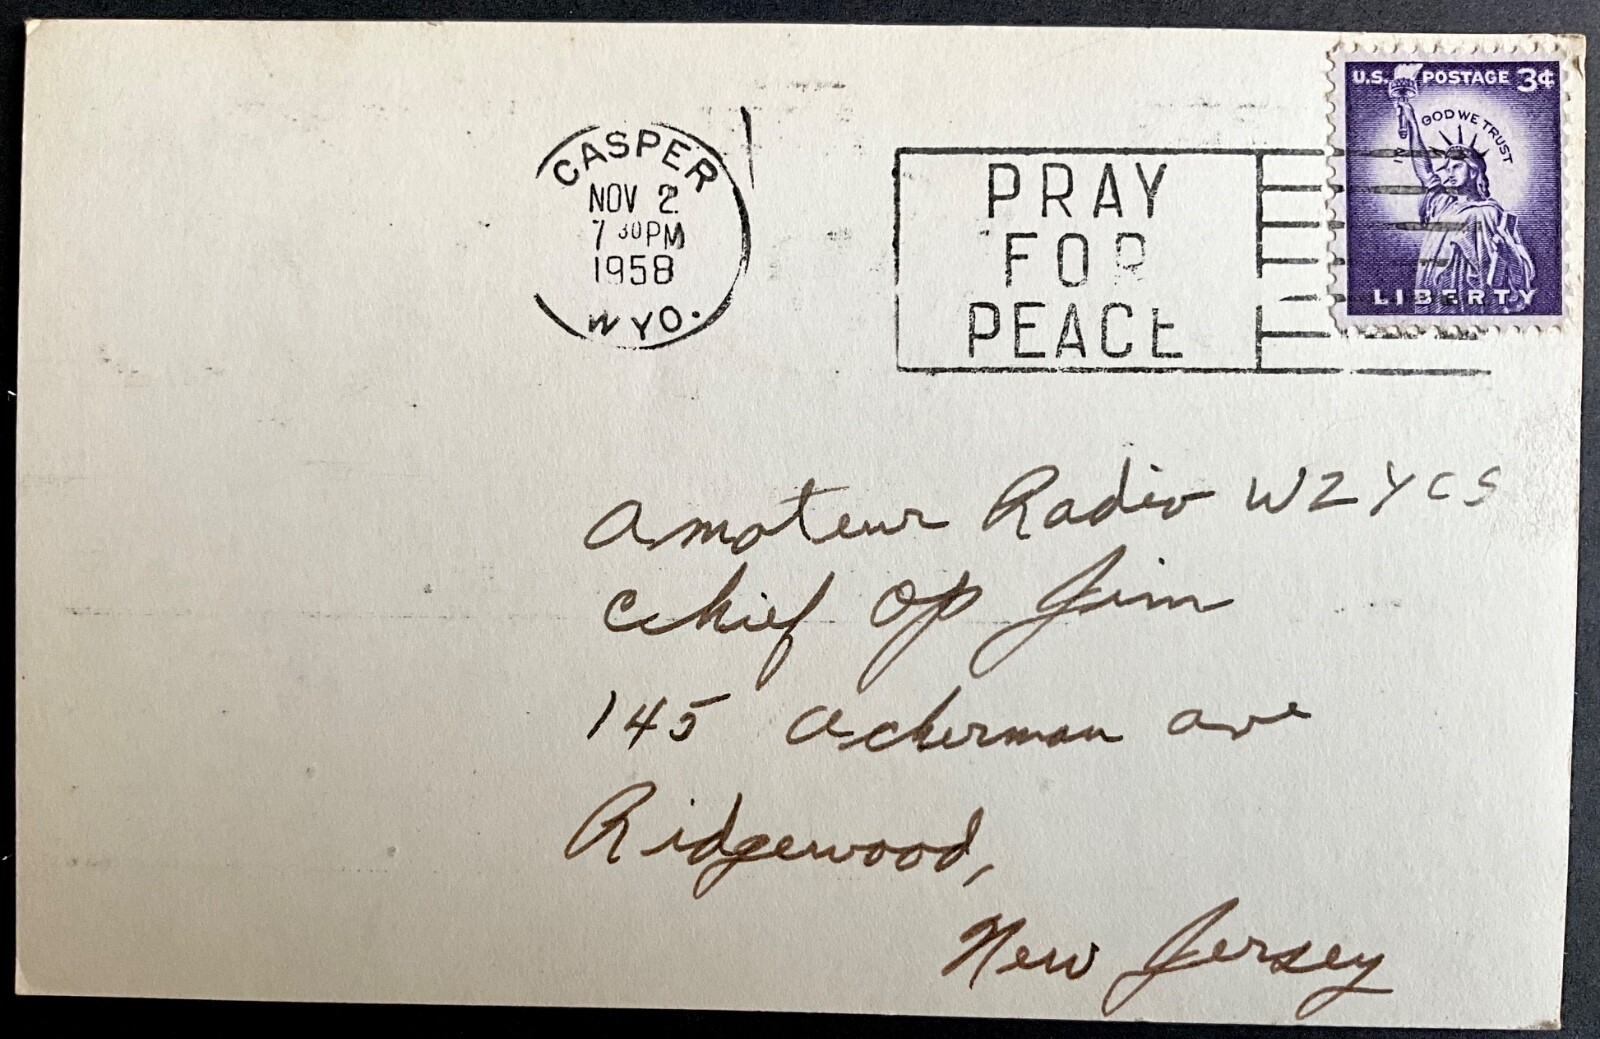 CASPER
NOV 2
7 30 PM
1958
WYO.
PRAY
FOR
PEACE
U.S. POSTAGE 3¢
IN GOD WE TRUST
LIBERTY
Amateur Radio W2YCS
Chief Op Jim
145 Ackerman Ave
Ridgewood,
New Jersey